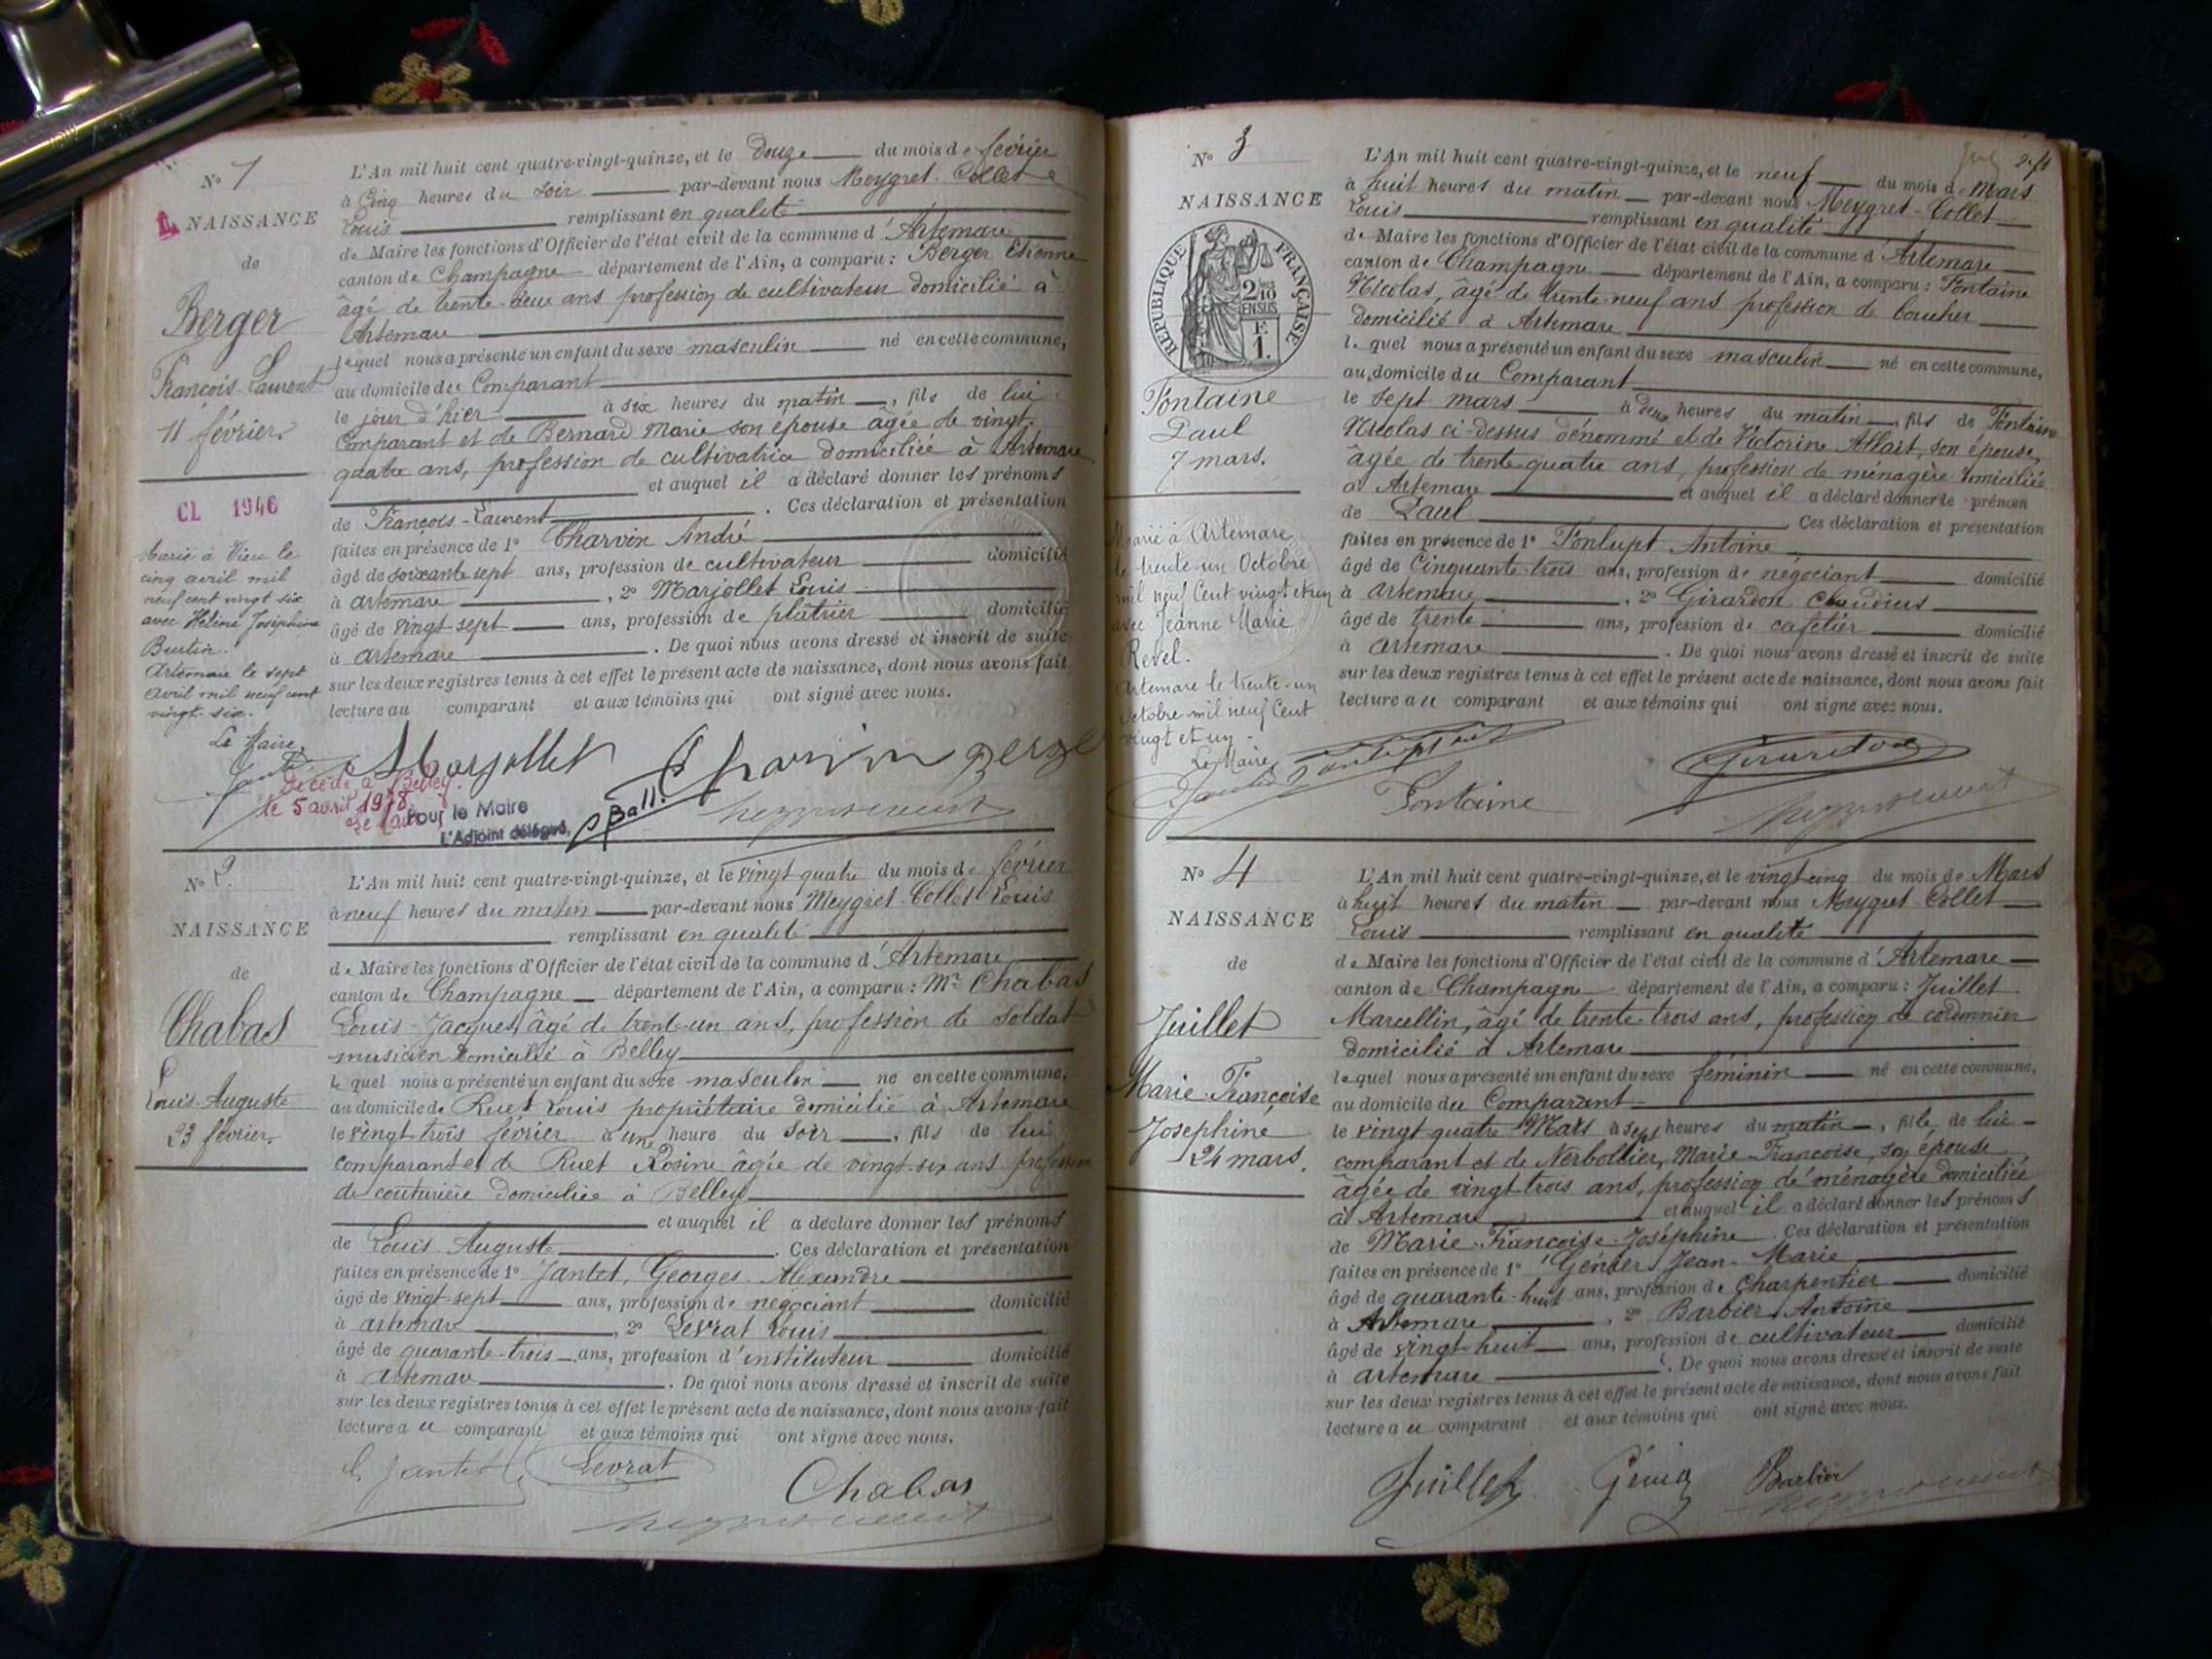 N° 1
L'An mil huit cent quatre-vingt-quinze, et le douze du mois de février
à Cinq heures du soir par-devant nous Meygret-Collet
1. NAISSANCE
Louis remplissant en qualité
de Maire les fonctions d'Officier de l'état civil de la commune d'Artemare
de
canton de Champagne département de l'Ain, a comparu : Berger Etienne
âgé de trente-deux ans profession de cultivateur domicilié à
Berger
Artemare
lequel nous a présenté un enfant du sexe masculin né en cette commune,
François-Laurent
au domicile du Comparant
11 février.
le jour d'hier à six heures du matin, fils de lui
comparant et de Bernard Marie son épouse âgée de vingt
quatre ans, profession de cultivatrice domiciliée à Artemare
et auquel il a déclaré donner les prénoms
CL 1946
de François-Laurent. Ces déclaration et présentation
Marié à Vieu le
faites en présence de 1° Charvin André
cinq avril mil
âgé de soixante sept ans, profession de cultivateur domicilié
neuf cent vingt six
à artemare, 2° Marjollet Louis
avec Hélène Joséphine
âgé de vingt-sept ans, profession de plâtrier domicilié
Burtin.
à artemare. De quoi nous avons dressé et inscrit de suite
Artemare le sept
sur les deux registres tenus à cet effet le présent acte de naissance, dont nous avons fait
avril mil neuf cent
vingt-six.
lecture au comparant et aux témoins qui ont signé avec nous.
Le Maire,
Marjollet Charvin Berger
décédé à Belley
le 5 avril 1978
Le Maire
Pour le Maire
L'Adjoint délégué,
N° 2.
L'An mil huit cent quatre-vingt-quinze, et le vingt quatre du mois de février
à neuf heures du matin par-devant nous Meygret-Collet Louis
NAISSANCE
remplissant en qualité
de Maire les fonctions d'Officier de l'état civil de la commune d'Artemare
de
canton de Champagne département de l'Ain, a comparu : Mr Chabas
Chabas
Louis-Jacques, âgé de trente-un ans, profession de Soldat
musicien domicilié à Belley
le quel nous a présenté un enfant du sexe masculin né en cette commune,
Louis-Auguste
au domicile de Ruet Louis propriétaire domicilié à Artemare
23 février.
le vingt trois février à une heure du soir, fils de lui
comparant et de Ruet Rosine âgée de vingt-six ans profession
de couturière domiciliée à Belley
et auquel il a déclaré donner les prénoms
de Louis Auguste. Ces déclaration et présentation
faites en présence de 1° Jantet, Georges-Alexandre
âgé de vingt-sept ans, profession de négociant domicilié
à artemare, 2° Levrat Louis
âgé de quarante-trois ans, profession d'instituteur domicilié
à artemare. De quoi nous avons dressé et inscrit de suite
sur les deux registres tenus à cet effet le présent acte de naissance, dont nous avons fait
lecture au comparant et aux témoins qui ont signé avec nous.
G. Jantet Levrat
Chabas
N° 3
L'An mil huit cent quatre-vingt-quinze, et le neuf du mois de Mars
à huit heures du matin par-devant nous Meygret-Collet
NAISSANCE
Louis remplissant en qualité
de Maire les fonctions d'Officier de l'état civil de la commune d'Artemare
REPUBLIQUE FRANÇAISE
2/10 EN SUS
F. 1.
canton de Champagne département de l'Ain, a comparu : Fontaine
Nicolas, âgé de trente-neuf ans profession de boucher
domicilié à Artemare
le quel nous a présenté un enfant du sexe masculin né en cette commune,
au domicile du Comparant
Fontaine
le sept mars à deux heures du matin, fils de Fontaine
Paul
Nicolas ci-dessus dénommé et de Victorine Allart, son épouse,
7 mars.
âgée de trente-quatre ans, profession de ménagère domiciliée
à Artemare et auquel il a déclaré donner le prénom
de Paul. Ces déclaration et présentation
Marié à Artemare
faites en présence de 1° Fonlupt Antoine
le trente-un Octobre
âgé de Cinquante-trois ans, profession de négociant domicilié
mil neuf Cent vingt et un
à artemare, 2° Girardon Claudius
avec Jeanne Marie
âgé de trente ans, profession de cafetier domicilié
Revel.
à artemare. De quoi nous avons dressé et inscrit de suite
Artemare le trente-un
sur les deux registres tenus à cet effet le présent acte de naissance, dont nous avons fait
Octobre mil neuf Cent
lecture au comparant et aux témoins qui ont signé avec nous.
vingt et un.
Le Maire
Girardon
Fontaine
N° 4
L'An mil huit cent quatre-vingt-quinze, et le vingt-cinq du mois de Mars
à huit heures du matin par-devant nous Meygret-Collet
NAISSANCE
Louis remplissant en qualité
de Maire les fonctions d'Officier de l'état civil de la commune d'Artemare
de
canton de Champagne département de l'Ain, a comparu : Juillet
Juillet
Marcellin, âgé de trente-trois ans, profession de cordonnier
domicilié à Artemare
lequel nous a présenté un enfant du sexe féminin né en cette commune,
Marie-Françoise
au domicile du Comparant
Joséphine
le vingt-quatre Mars à sept heures du matin, fille de lui
24 mars.
comparant et de Nerbollier, Marie-Françoise, son épouse
âgée de vingt-trois ans, profession de ménagère domiciliée
à Artemare et auquel il a déclaré donner les prénoms
de Marie-Françoise-Joséphine. Ces déclaration et présentation
faites en présence de 1° Génier Jean-Marie
âgé de quarante-huit ans, profession de Charpentier domicilié
à Artemare, 2° Barbier Antoine
âgé de vingt-huit ans, profession de cultivateur domicilié
à artemare. De quoi nous avons dressé et inscrit de suite
sur les deux registres tenus à cet effet le présent acte de naissance, dont nous avons fait
lecture au comparant et aux témoins qui ont signé avec nous.
Juillet Barbier